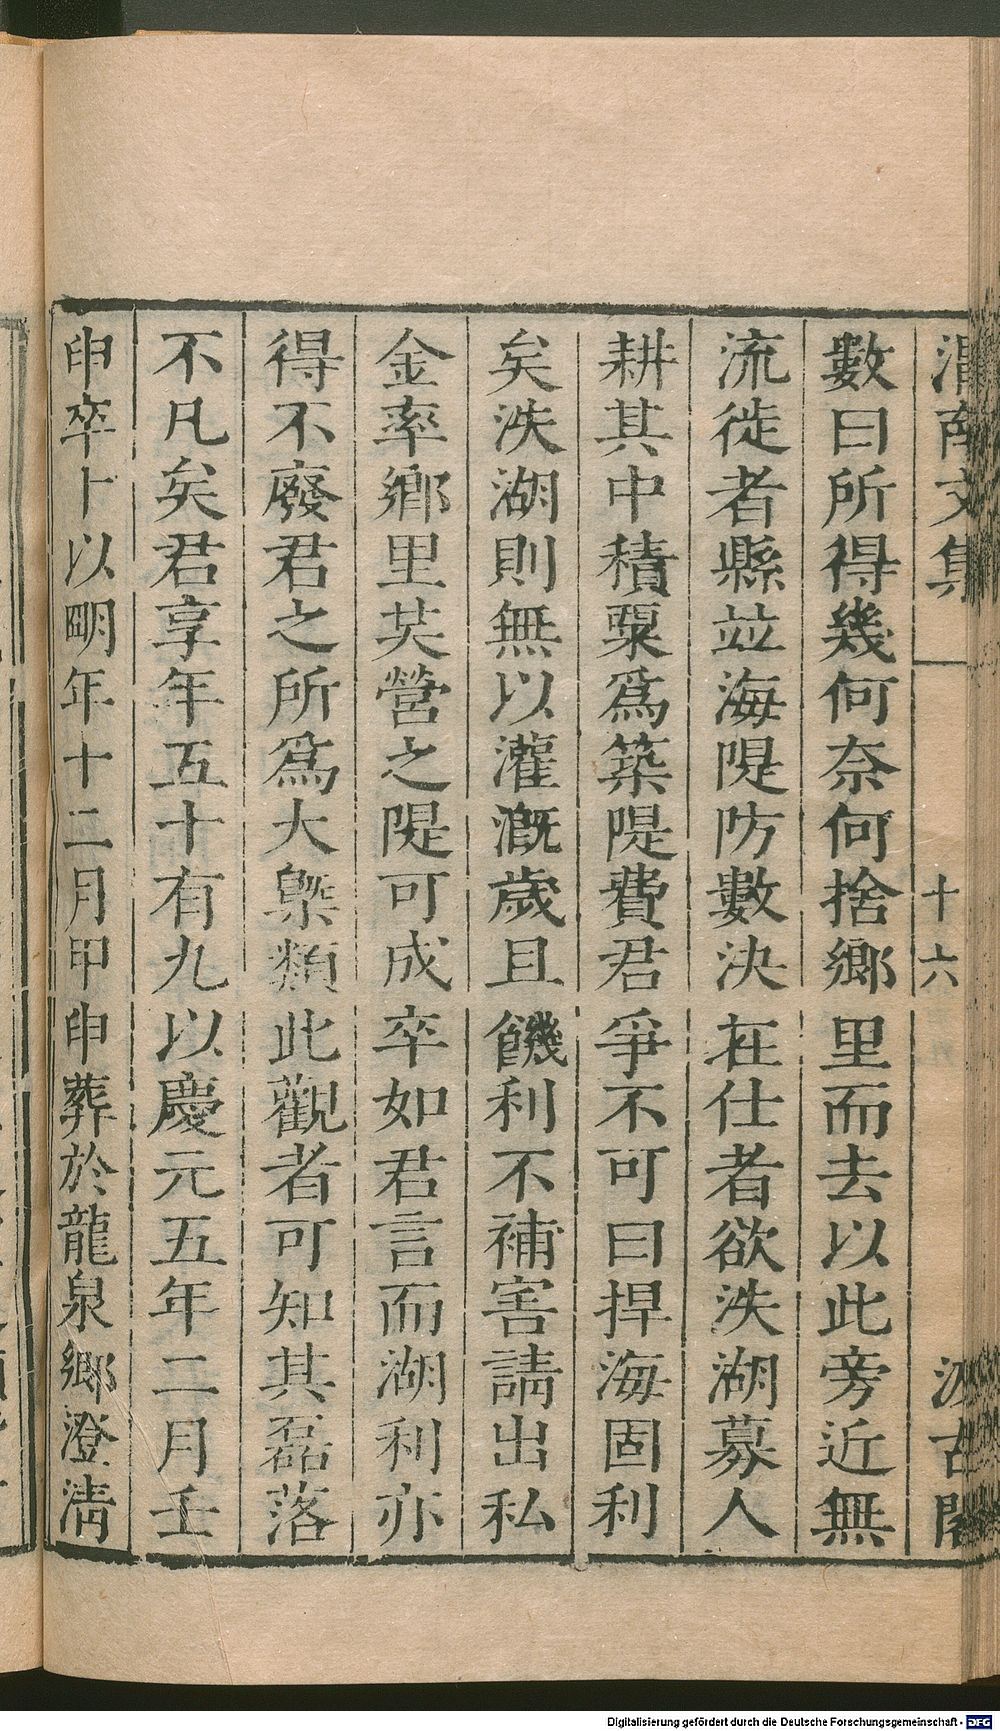 渭南文集 十六 汲古閣
數曰所得幾何奈何捨鄉里而去以此旁近無
流徙者縣並海隄防數決在仕者欲泆湖募人
耕其中積粟爲築隄費君爭不可曰捍海固利
矣泆湖則無以灌溉歲且饑利不補害請出私
金率鄉里共營之隄可成卒如君言而湖利亦
得不廢君之所爲大槩類此觀者可知其磊落
不凡矣君享年五十有九以慶元五年二月壬
申卒卜以明年十二月甲申葬於龍泉鄉澄清
Digitalisierung gefördert durch die Deutsche Forschungsgemeinschaft - DFG